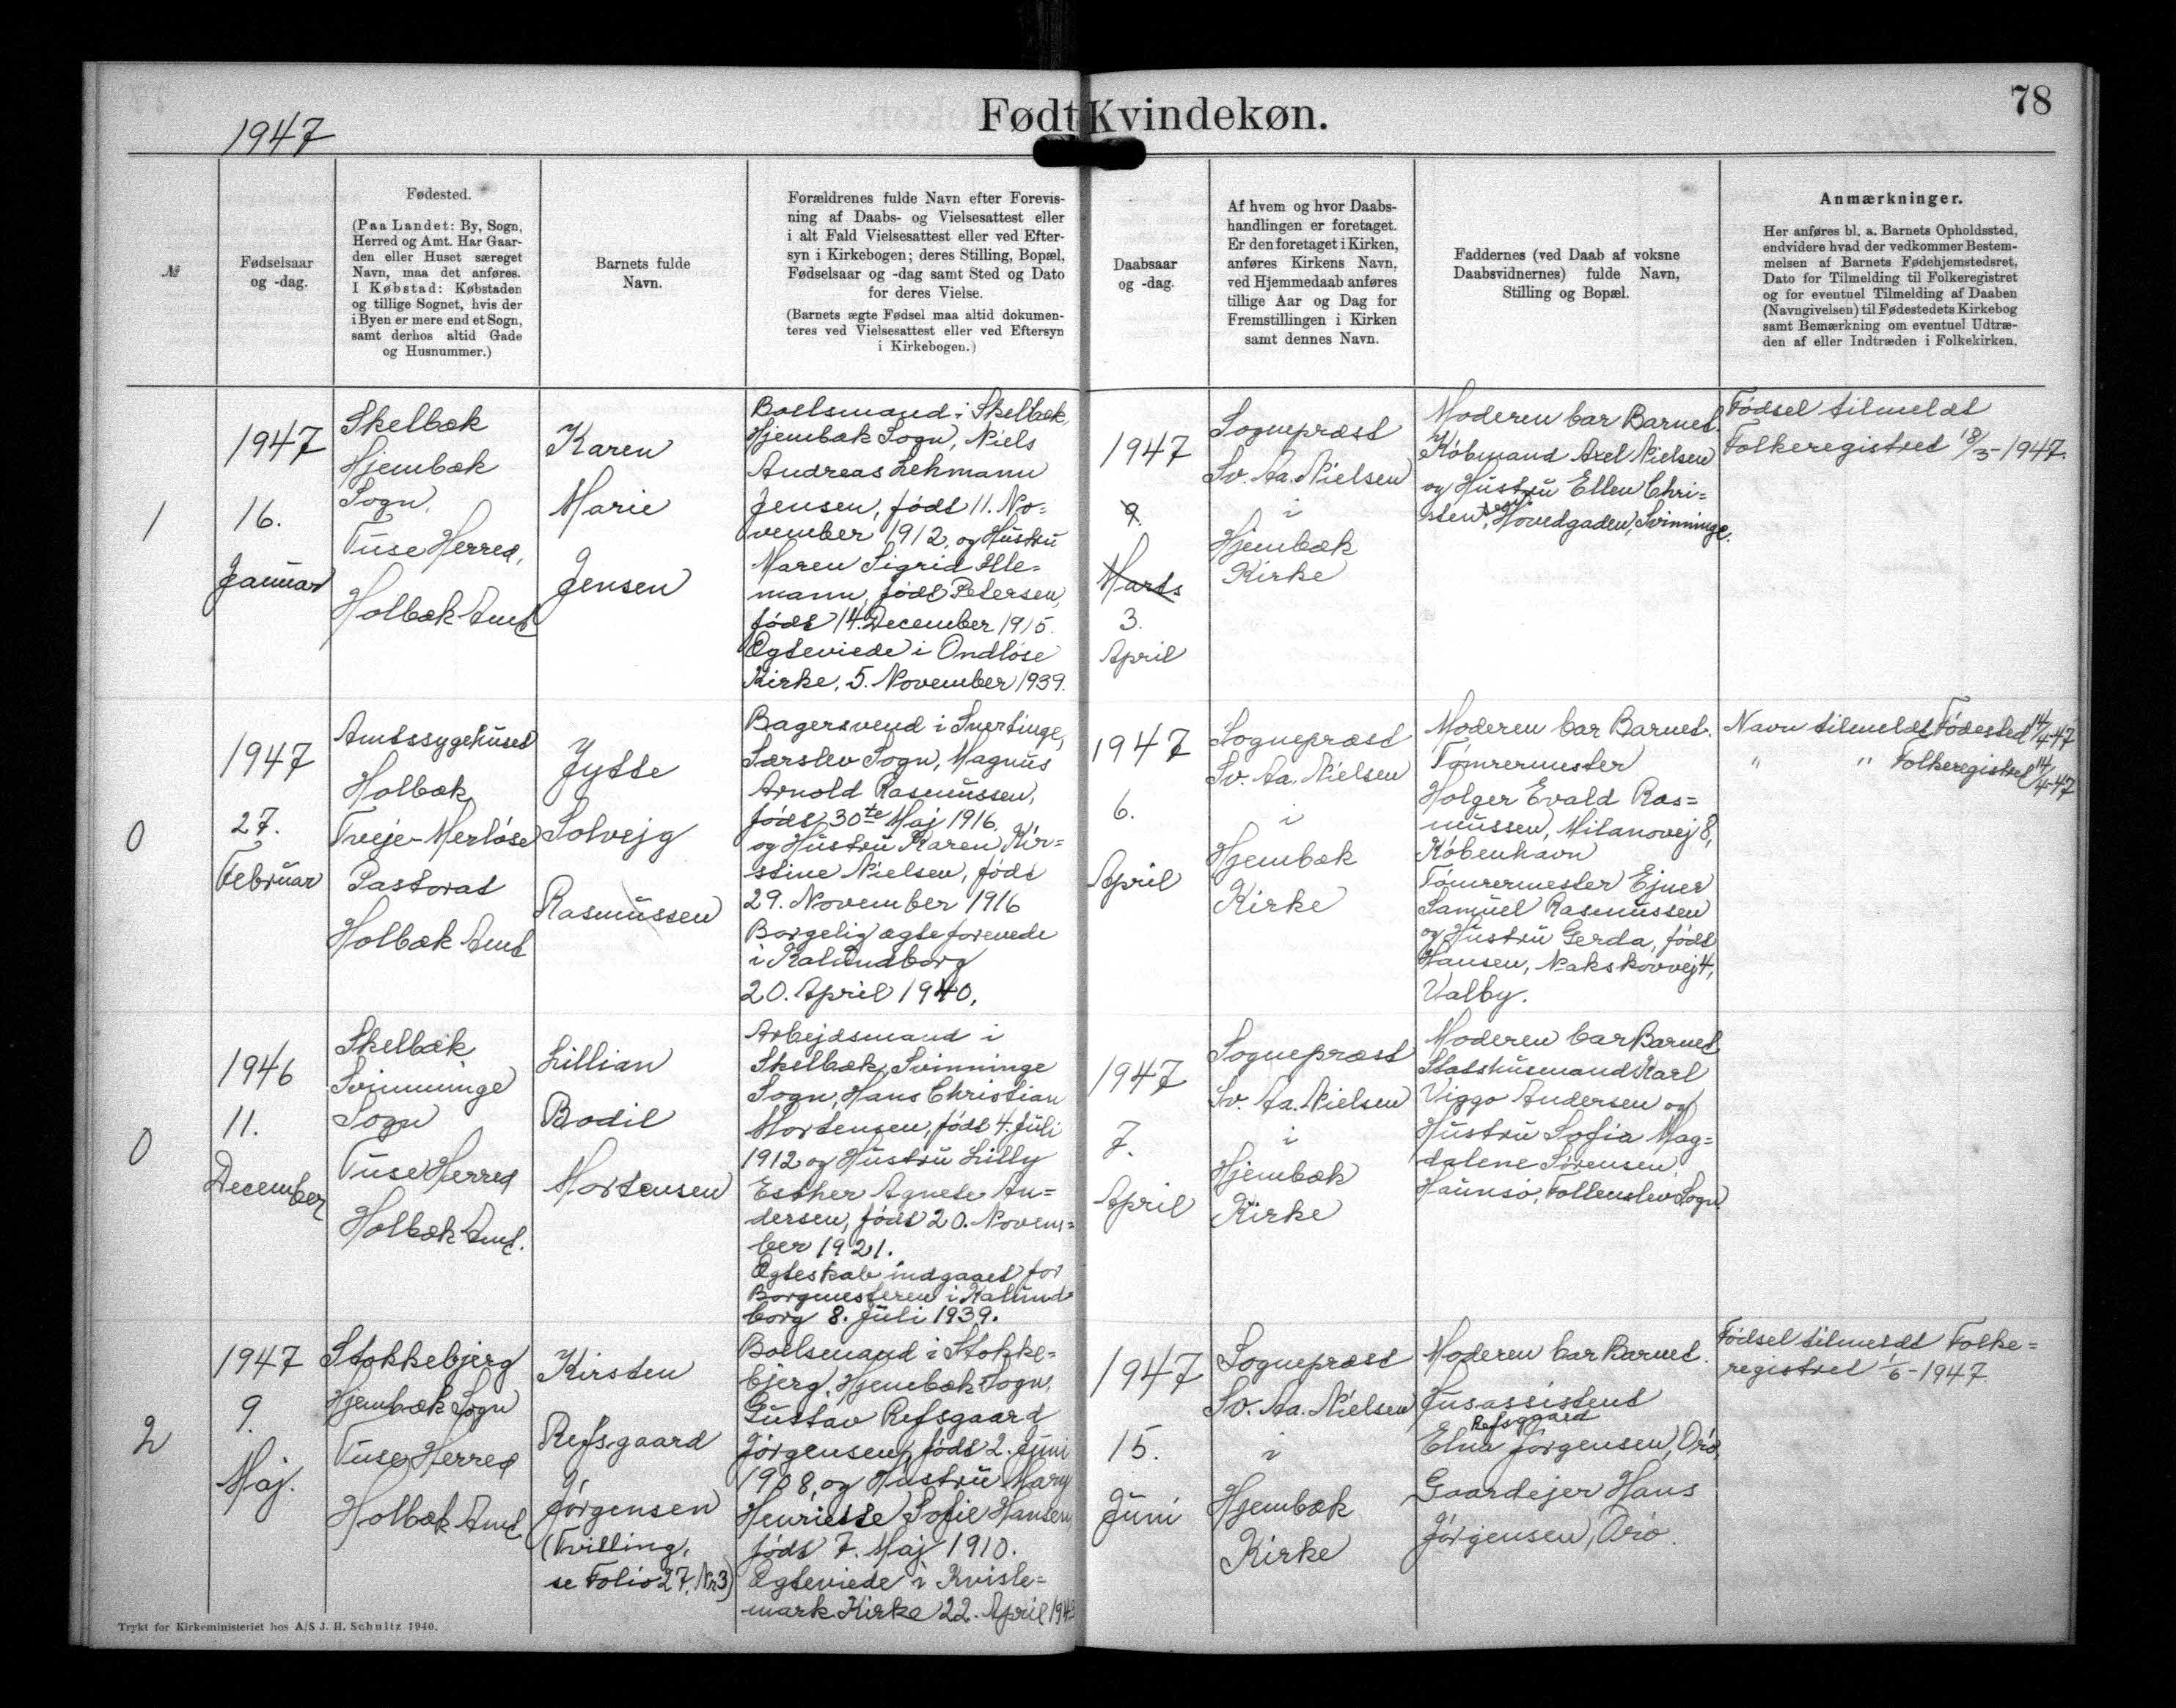 Født Kvindekøn.
78
1947
№
Fødselsaar
og -dag.
Fødested.
(Paa Landet: By, Sogn,
Herred og Amt. Har Gaar-
den eller Huset særeget
Navn, maa det anføres.
I Købstad: Købstaden
og tillige Sognet, hvis der
i Byen er mere end et Sogn,
samt derhos altid Gade
og Husnummer.)
Barnets fulde
Navn.
Forældrenes fulde Navn efter Forevis-
ning af Daabs- og Vielsesattest eller
i alt Fald Vielsesattest eller ved Efter-
syn i Kirkebogen; deres Stilling, Bopæl,
Fødselsaar og -dag samt Sted og Dato
for deres Vielse.
(Barnets ægte Fødsel maa altid dokumen-
teres ved Vielsesattest eller ved Eftersyn
i Kirkebogen.)
Daabsaar
og -dag.
Af hvem og hvor Daabs-
handlingen er foretaget.
Er den foretaget i Kirken,
anføres Kirkens Navn,
ved Hjemmedaab anføres
tillige Aar og Dag for
Fremstillingen i Kirken
samt dennes Navn.
Faddernes (ved Daab af voksne
Daabsvidnernes) fulde Navn,
Stilling og Bopæl.
Anmærkninger.
Her anføres bl. a. Barnets Opholdssted,
endvidere hvad der vedkommer Bestem-
melsen af Barnets Fødehjemstedsret,
Dato for Tilmelding til Folkeregistret
og for eventuel Tilmelding af Daaben
(Navngivelsen) til Fødestedets Kirkebog
samt Bemærkning om eventuel Udtræ-
den af eller Indtræden i Folkekirken.
1
1947
16.
Januar
Skelbæk
Hjembæk
Sogn,
Tuse Herred,
Holbæk Amt
Karen
Marie
Jensen
Boelsmand i Skelbæk,
Hjembæk Sogn, Niels
Andreas Lehmann
Jensen, født 11. No=
vember 1912, og Hustru
Maren Sigrid
mann, født Petersen,
født 14. December 1915.
Ægteviede i Ondløse
Kirke, 5. November 1939.
1947
9.
Marts
3.
April
Sognepræst
Sv. Aa. Nielsen
i
Hjembæk
Kirke
Moderen bar Barnet.
Købmand Axel Nielsen
og Hustru Ellen Chri=
sten, Hovedgaden, Svinninge.
Fødsel tilmeldt
Folkeregistret 18/3-1947.
0
1947
27.
Februar
Amtssygehuset
Holbæk
Tveje-Merløse
Pastorat
Holbæk Amt
Jytte
Solvejg
Rasmussen
Bagersvend i Snertinge,
Særslev Sogn, Magnus
Arnold Rasmussen,
født 30te Maj 1916,
og Hustru Karen Kir=
stine Nielsen, født
29. November 1916
Borgelig ægteforenede
i Kalundborg
20. April 1940.
1947
6.
April
Sognepræst
Sv. Aa. Nielsen
i
Hjembæk
Kirke
Moderen bar Barnet.
Tømrermester
Holger Evald Ras=
mussen, Milanovej 8,
København
Tømrermester Ejner
Samuel Rasmussen
og Hustru Gerda, født
Hansen, Nakskovvej 4,
Valby.
Navn tilmeldt Fødested 14/4-47
" " Folkeregistret 14/4-47
0
1946
11.
December
Skelbæk
Svinninge
Sogn
Tuse Herred
Holbæk Amt.
Lillian
Bodil
Mortensen
Arbejdsmand i
Skelbæk, Svinninge
Sogn, Hans Christian
Mortensen, født 4. Juli
1912 og Hustru Lilly
Esther Agnete An=
dersen, født 20. Novem=
ber 1921.
Ægteskab indgaaet for
Borgmesteren i Kalund
borg 8. Juli 1939.
1947
7.
April
Sognepræst
Sv. Aa. Nielsen
i
Hjembæk
Kirke
Moderen bar Barnet
Statshusmand Karl
Viggo Andersen og
Hustru Sofia Mag=
dalene Sørensen,
Havnsø, Føllenslev Sogn.
2
1947
9.
Maj.
Stokkebjerg
Hjembæk Sogn
Tuse Herred
Holbæk Amt
Kirsten
Refsgaard
Jørgensen
(Tvilling,
se Folio 27, Nr 3)
Boelsmand i Stokke=
bjerg, Hjembæk Sogn,
Gustav Refsgaard
Jørgensen, født 2. Juni
1908, og Hustru Mary
Henriette Sofie Hansen,
født 7. Maj 1910.
Ægteviede i Kvisle=
mark Kirke 22. April
1947
15.
Juni
Sognepræst
Sv. Aa. Nielsen
i
Hjembæk
Kirke
Moderen bar Barnet.
Husassistent
Refsgaard
Elna Jørgensen, Orø,
Gaardejer Hans
Jørgensen, Orø.
Fødsel tilmeldt Folke=
registret 1/6-1947
Trykt for Kirkeministeriet hos A/S J. H. Schultz 1940.